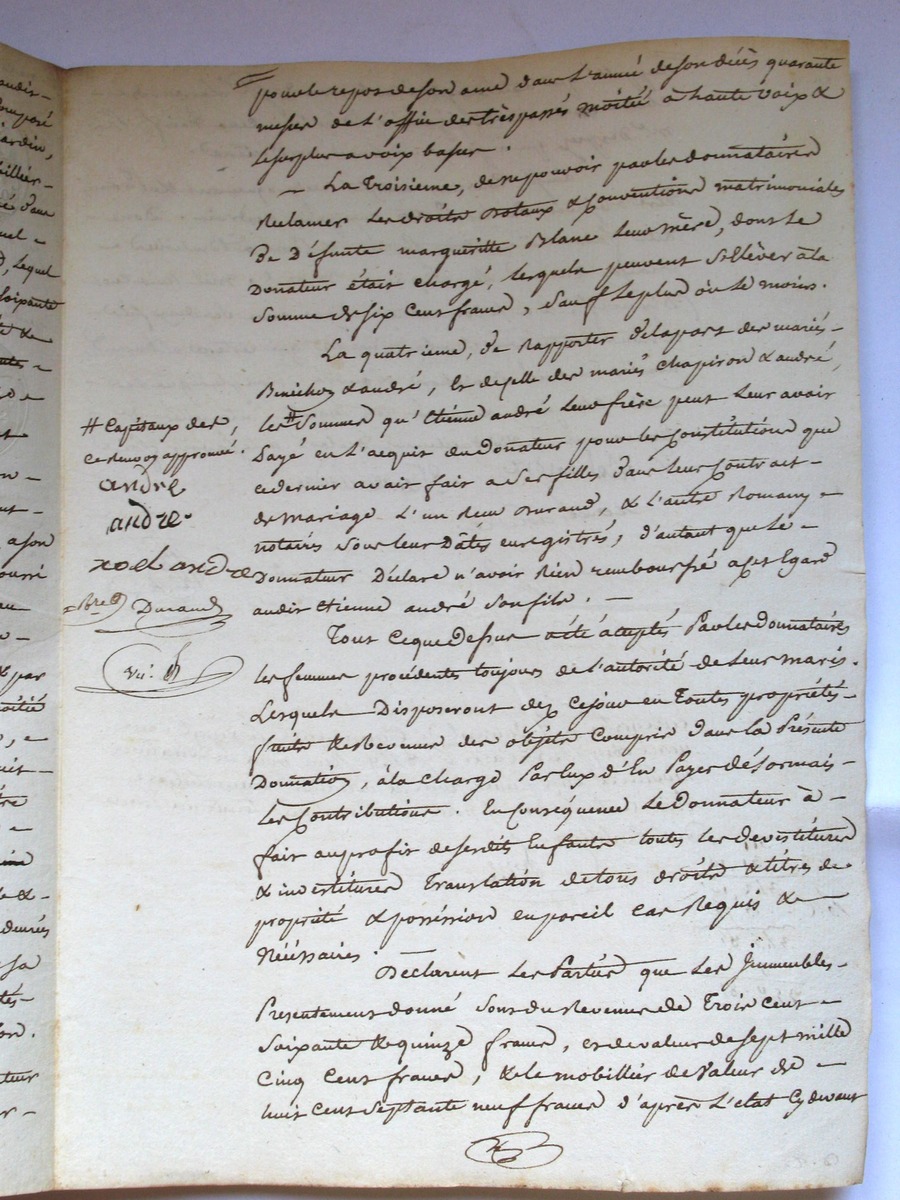 pour le repos de son ame dans l'année de son décès quarante
messes de l'office des trèspassés moitié à haute voix &
le surplus a voix basse.
— La Troisieme, de ne pouvoir par les donnataires
Reclamer les droits dotaux & conventions matrimoniales
De Défunte margueritte Blanc leur mère, dont le
Donateur était chargé, lesquels peuvent s'éléver à la
somme de six cent francs, sauf le plus ou le moins.
La quatrieme, de Rapporter de la part des mariés —
Benichon & andré, Et de celle des mariés chapiron & andré,
les # Sommes qu'Etienne andré leur frère peut leur avoir
payé en l'acquit du Donateur pour les Constitutions que
ce dernier avait fait a ses filles dans leur Contract —
de Mariage L'un Reçu Durand, & L'autre Romany —
notaires sous leur Dâtes enregistrés, d'autant que le —
Donnateur Déclare n'avoir Rien rembourssé a cet Egard
audit Etienne andré son fils. —
Tout ce que Dessus a été acceptés Par les Donnataires
les femmes procédents toujours de l'autorité de leur maris.
Lesquels Disposeront dez ce jour en Toutes propriétés —
fruits & Revenus des objets Compris dans la Présente
Donnation, à la charge Par Eux d'En Payer désormais —
Les Contributions. En Conséquence Le Donnateur à —
fait au profit de ses dits Enfants toutes les devestitures
& investitures Translation de tous droits & titres de
propriété & posséssion en pareil cas Requis & —
Nécéssaires.
Déclarent Les Parties que Les Immeubles —
Presentement donné sont du Revenus de Trois cent —
soixante & quinze francs, et de valeur de sept mille
cinq cent francs, & le mobillier de Valeur de —
huit cent septante neuf francs d'après L'état cy devant
# Capitaux des,
ce renvoy approuvé.
andré
andre
noel andre
Durand